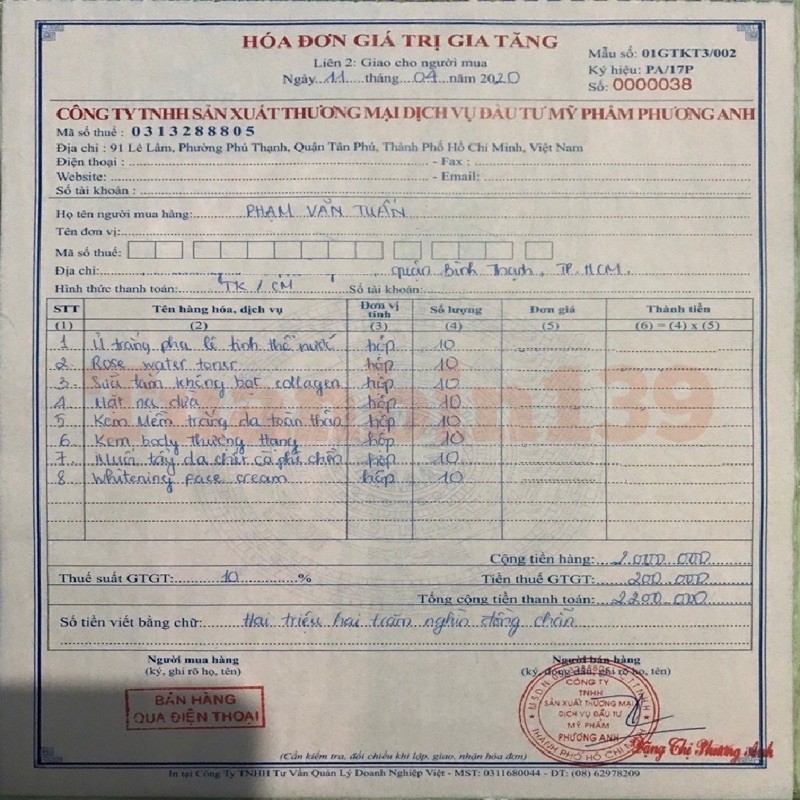 HÓA ĐƠN GIÁ TRỊ GIA TĂNG
Liên 2: Giao cho người mua
Ngày 11 tháng 04 năm 2020
Mẫu số: 01GTKT3/002
Ký hiệu: PA/17P
Số: 0000038
CÔNG TY TNHH SẢN XUẤT THƯƠNG MẠI DỊCH VỤ ĐẦU TƯ MỸ PHẨM PHƯƠNG ANH
Mã số thuế : 0313288805
Địa chỉ : 91 Lê Lâm, Phường Phú Thạnh, Quận Tân Phú, Thành Phố Hồ Chí Minh, Việt Nam
Điện thoại : - Fax :
Website: - Email:
Số tài khoản :
Họ tên người mua hàng: PHẠM VĂN TUẤN
Tên đơn vị:
Mã số thuế:
Địa chỉ: quận Bình Thạnh, TP. HCM.
Hình thức thanh toán: TK / CM Số tài khoản:
STT Tên hàng hóa, dịch vụ Đơn vị tính Số lượng Đơn giá Thành tiền
(1) (2) (3) (4) (5) (6) = (4) x (5)
1 Ủ trắng pha lê tinh thể nước hộp 10
2 Rose water toner hộp 10
3 Sữa tắm không bọt collagen hộp 10
4 Mặt nạ dừa hộp 10
5 Kem Mềm trắng da toàn thân hộp 10
6 Kem body thượng hạng hộp 10
7 Muối tẩy da chết cà phê hộp 10
8 Whitening face cream hộp 10
Cộng tiền hàng: 2.000.000
Thuế suất GTGT: 10 % Tiền thuế GTGT: 200.000
Tổng cộng tiền thanh toán: 2.200.000
Số tiền viết bằng chữ: Hai triệu hai trăm nghìn đồng chẵn
Người mua hàng
(ký, ghi rõ họ, tên)
Người bán hàng
(ký, đóng dấu, ghi rõ họ, tên)
BÁN HÀNG
QUA ĐIỆN THOẠI
CÔNG TY
TNHH
SẢN XUẤT THƯƠNG MẠI
DỊCH VỤ ĐẦU TƯ
MỸ PHẨM
PHƯƠNG ANH
THÀNH PHỐ HỒ CHÍ MINH
Đặng Thị Phương Anh
(Cần kiểm tra, đối chiếu khi lập, giao, nhận hóa đơn)
In tại Công Ty TNHH Tư Vấn Quản Lý Doanh Nghiệp Việt - MST: 0311680044 - ĐT: (08) 62978209